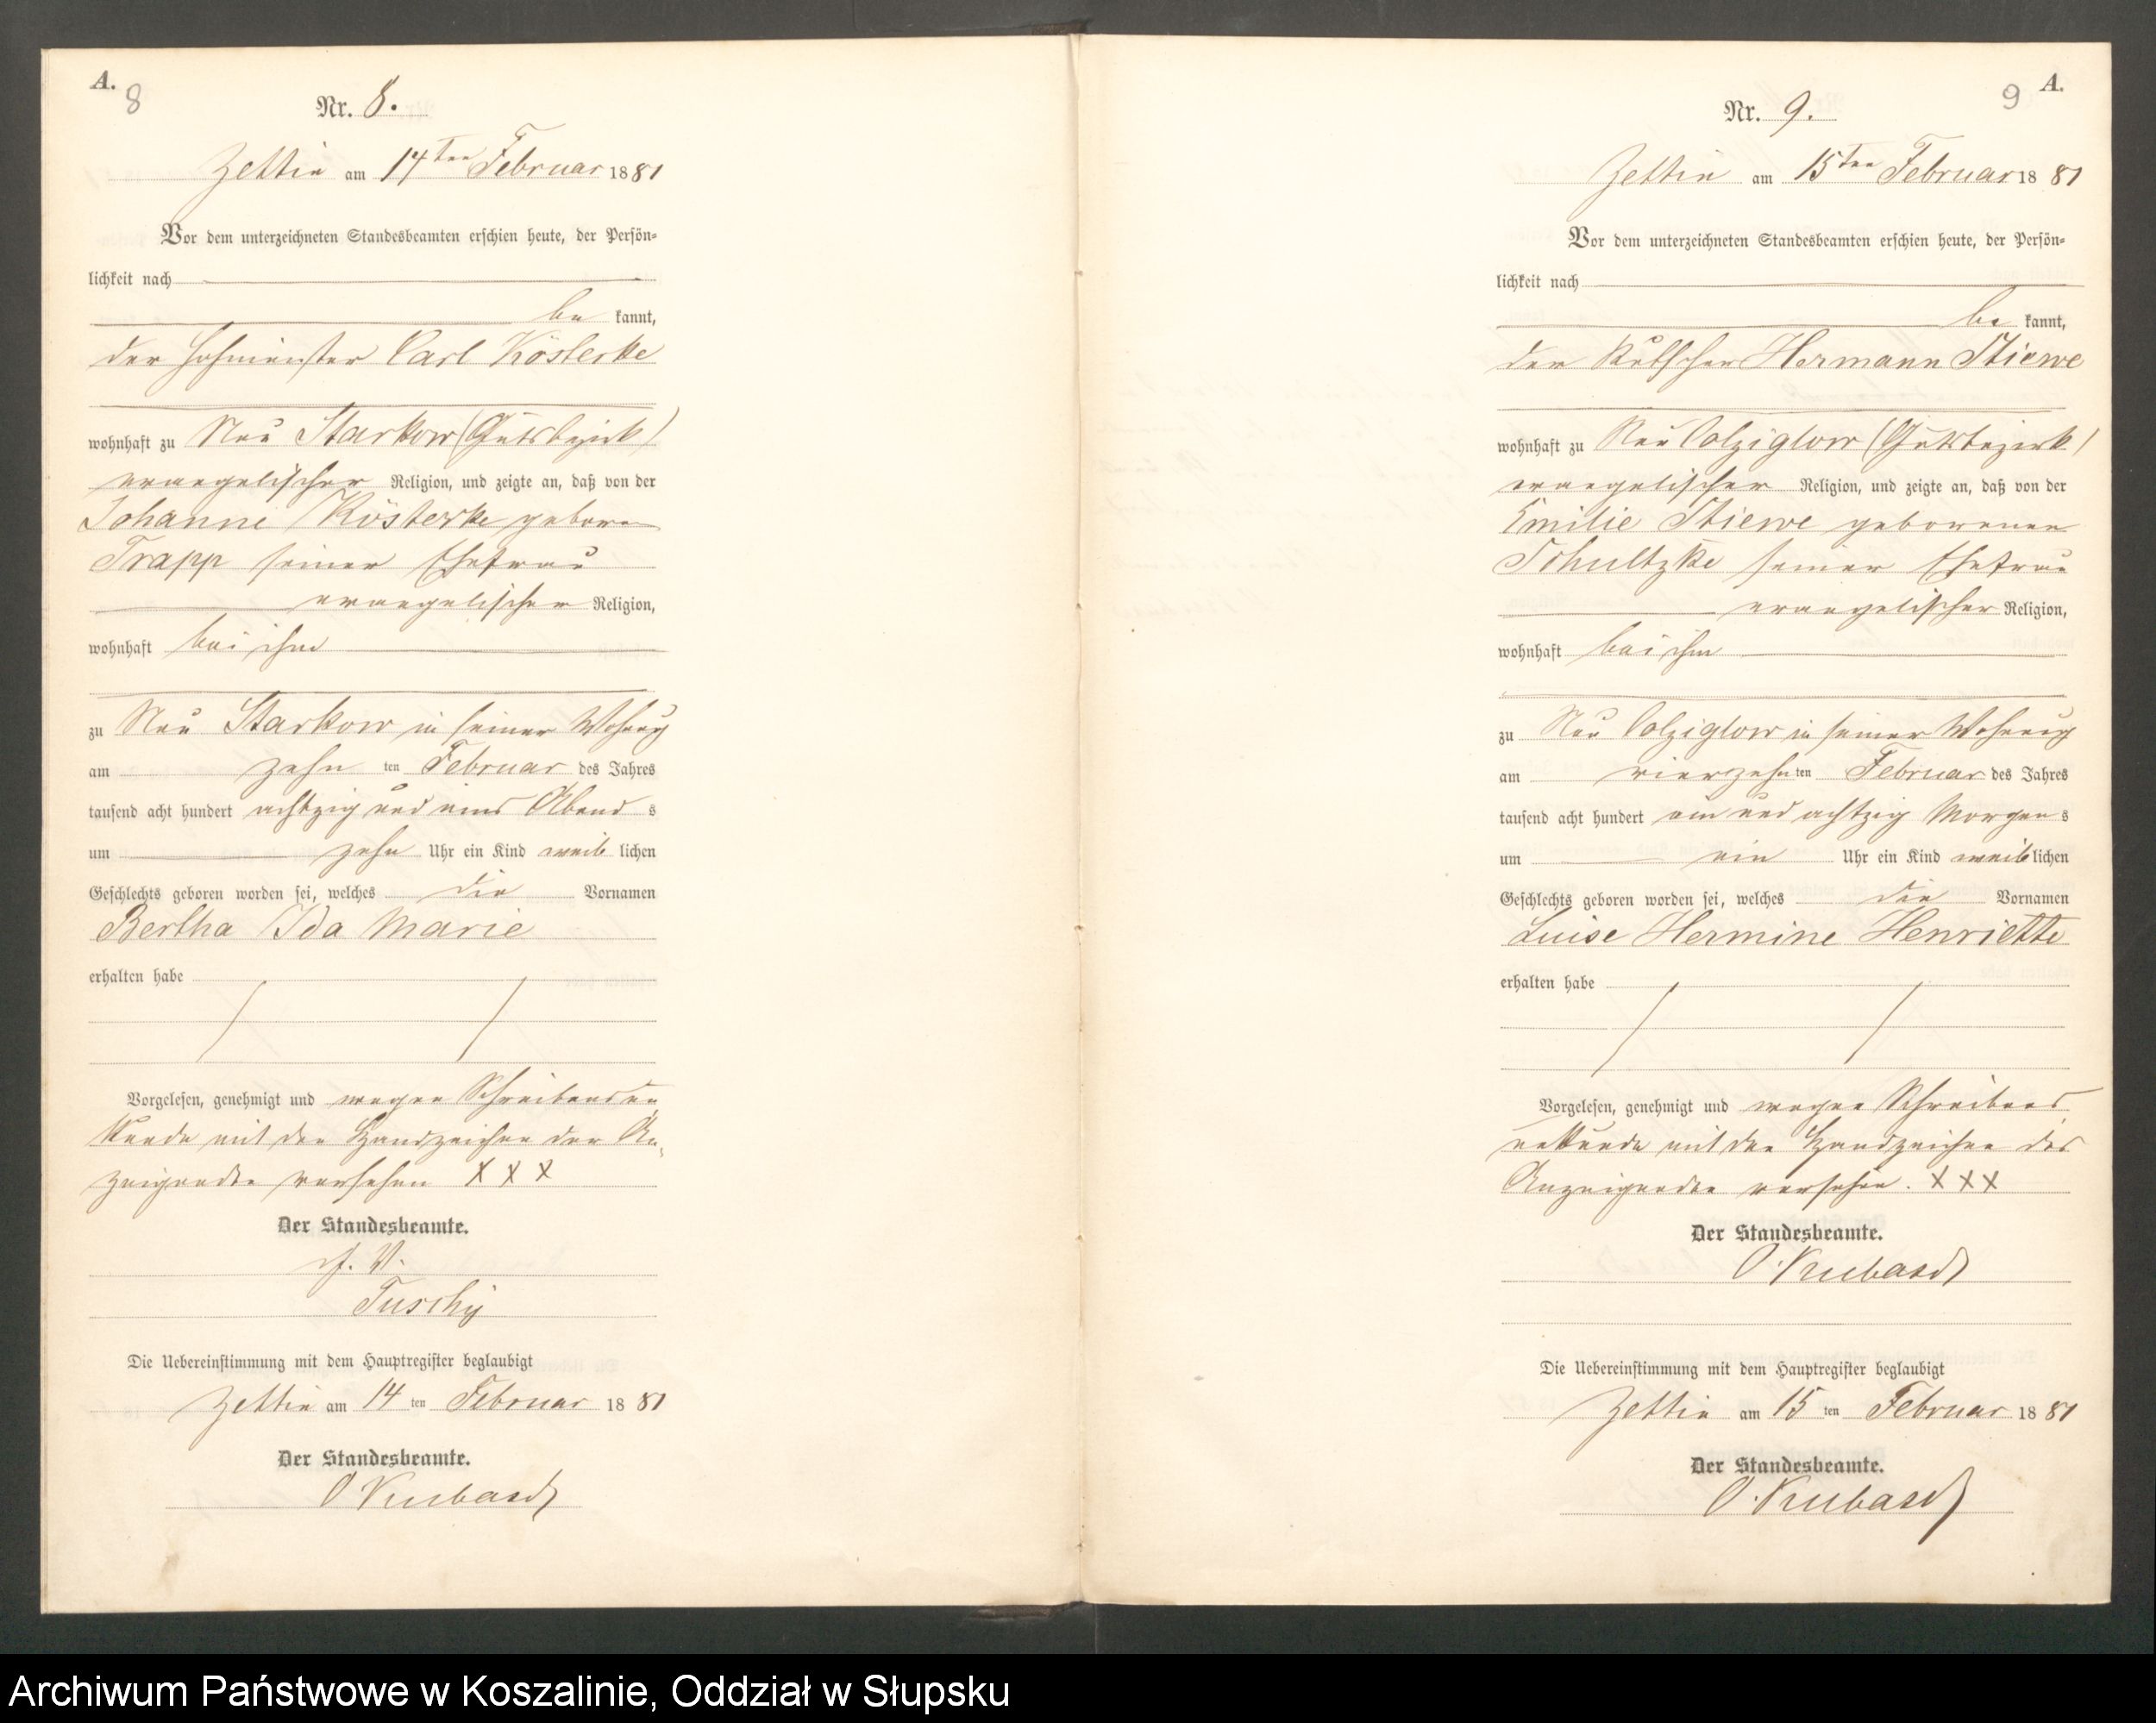 A.
8
Nr. 8.
Zettin am 14ten Februar 1881
Vor dem unterzeichneten Standesbeamten erschien heute, der Persön-
lichkeit nach
be kannt,
der Hofmeister Carl Kösterke
wohnhaft zu Neu Starkow (Gutsbezirk)
evangelischer Religion, und zeigte an, daß von der
Johanne Kösterke geboren
Trapp seiner Ehefrau
evangelischer Religion,
wohnhaft bei ihm
zu Neu Starkow in seiner Wohnung
am zehn ten Februar des Jahres
tausend acht hundert achtzig und eins Abend s
um zehn Uhr ein Kind weib lichen
Geschlechts geboren worden sei, welches die Vornamen
Bertha Ida Marie
erhalten habe
Vorgelesen, genehmigt und wegen Schreibensun
kunde mit den Handzeichen des An-
zeigenden versehen XXX
Der Standesbeamte.
J. V.
Tuschy
Die Uebereinstimmung mit dem Hauptregister beglaubigt
Zettin am 14 ten Februar 1881
Der Standesbeamte.
O Kubasch
9
A.
Nr. 9.
Zettin am 15ten Februar 1881
Vor dem unterzeichneten Standesbeamten erschien heute, der Persön-
lichkeit nach
be kannt,
der Kutscher Hermann Stiewe
wohnhaft zu Neu Colziglow (Gutsbezirk)
evangelischer Religion, und zeigte an, daß von der
Emilie Stiewe geborenen
Schultzke seiner Ehefrau
evangelischer Religion,
wohnhaft bei ihm
zu Neu Colziglow in seiner Wohnung
am vierzehn ten Februar des Jahres
tausend acht hundert ein und achtzig Morgen s
um ein Uhr ein Kind weib lichen
Geschlechts geboren worden sei, welches die Vornamen
Luise Hermine Henriette
erhalten habe
Vorgelesen, genehmigt und wegen Schreibens
unkunde mit den Handzeichen des
Anzeigenden versehen. XXX
Der Standesbeamte.
O. Kubasch
Die Uebereinstimmung mit dem Hauptregister beglaubigt
Zettin am 15 ten Februar 1881
Der Standesbeamte.
O. Kubasch
Archiwum Państwowe w Koszalinie, Oddział w Słupsku